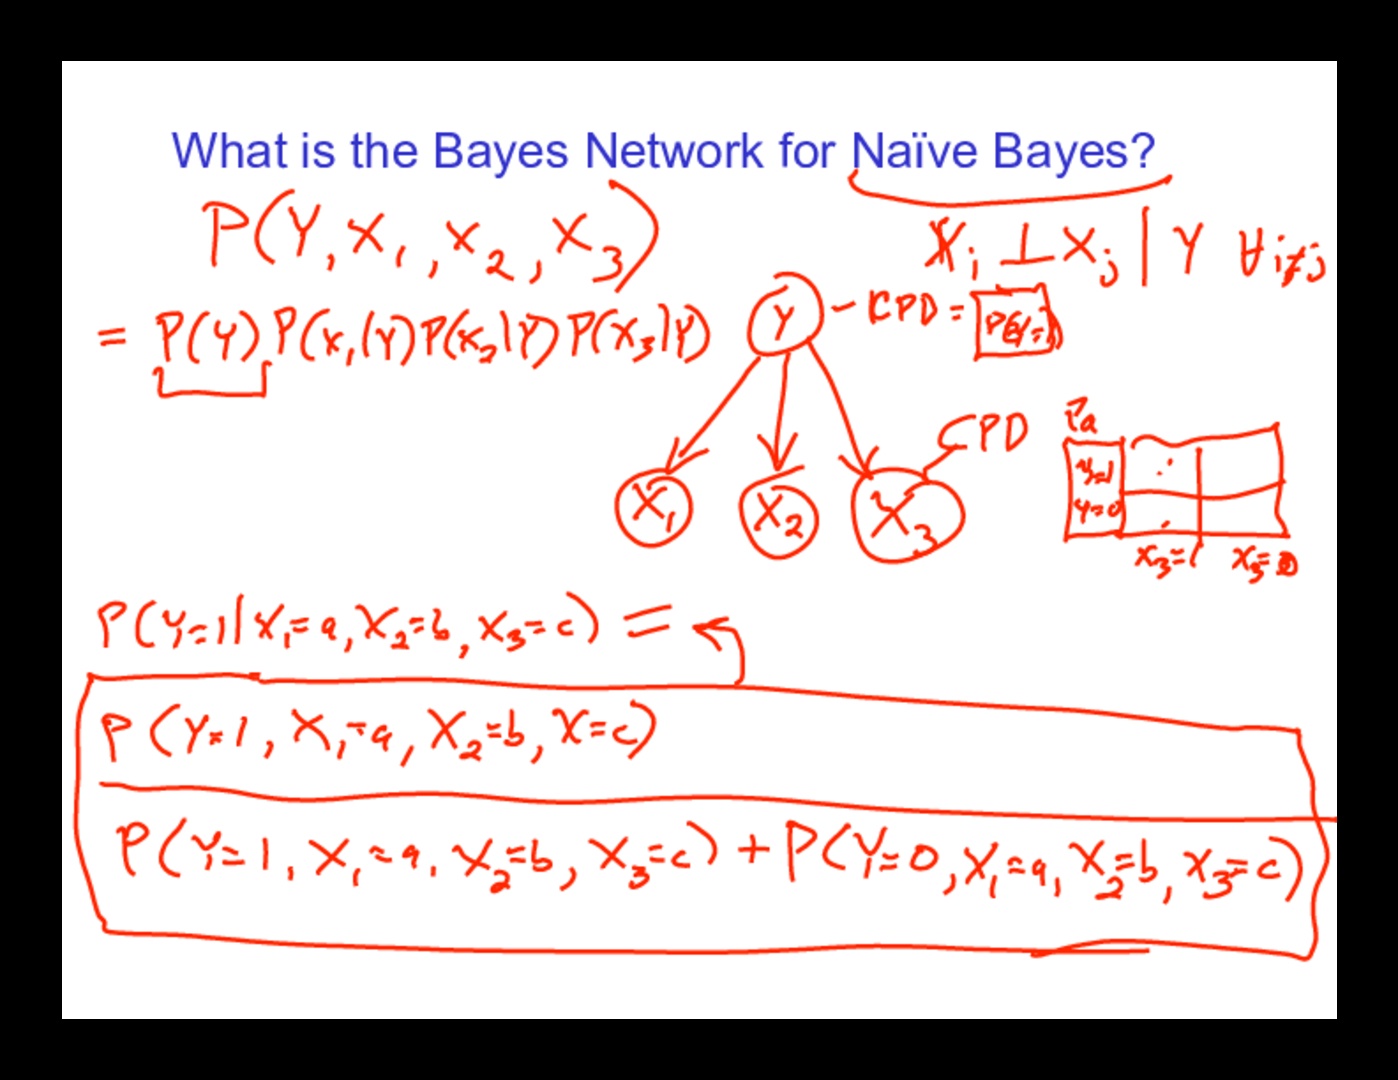 What is the Bayes Network for Naïve Bayes?
P(Y, X₁, X₂, X₃)
Xᵢ ⊥ Xⱼ | Y ∀i≠j
= P(Y) P(X₁|Y) P(X₂|Y) P(X₃|Y)
Y - CPD = P(Y=1)
CPD
Pa
Y=1
Y=0
X₃=1 X₃=0
X₁ X₂ X₃
P(Y=1|X₁=a, X₂=b, X₃=c) =
P(Y=1, X₁=a, X₂=b, X=c)
P(Y=1, X₁=a, X₂=b, X₃=c) + P(Y=0, X₁=a, X₂=b, X₃=c)